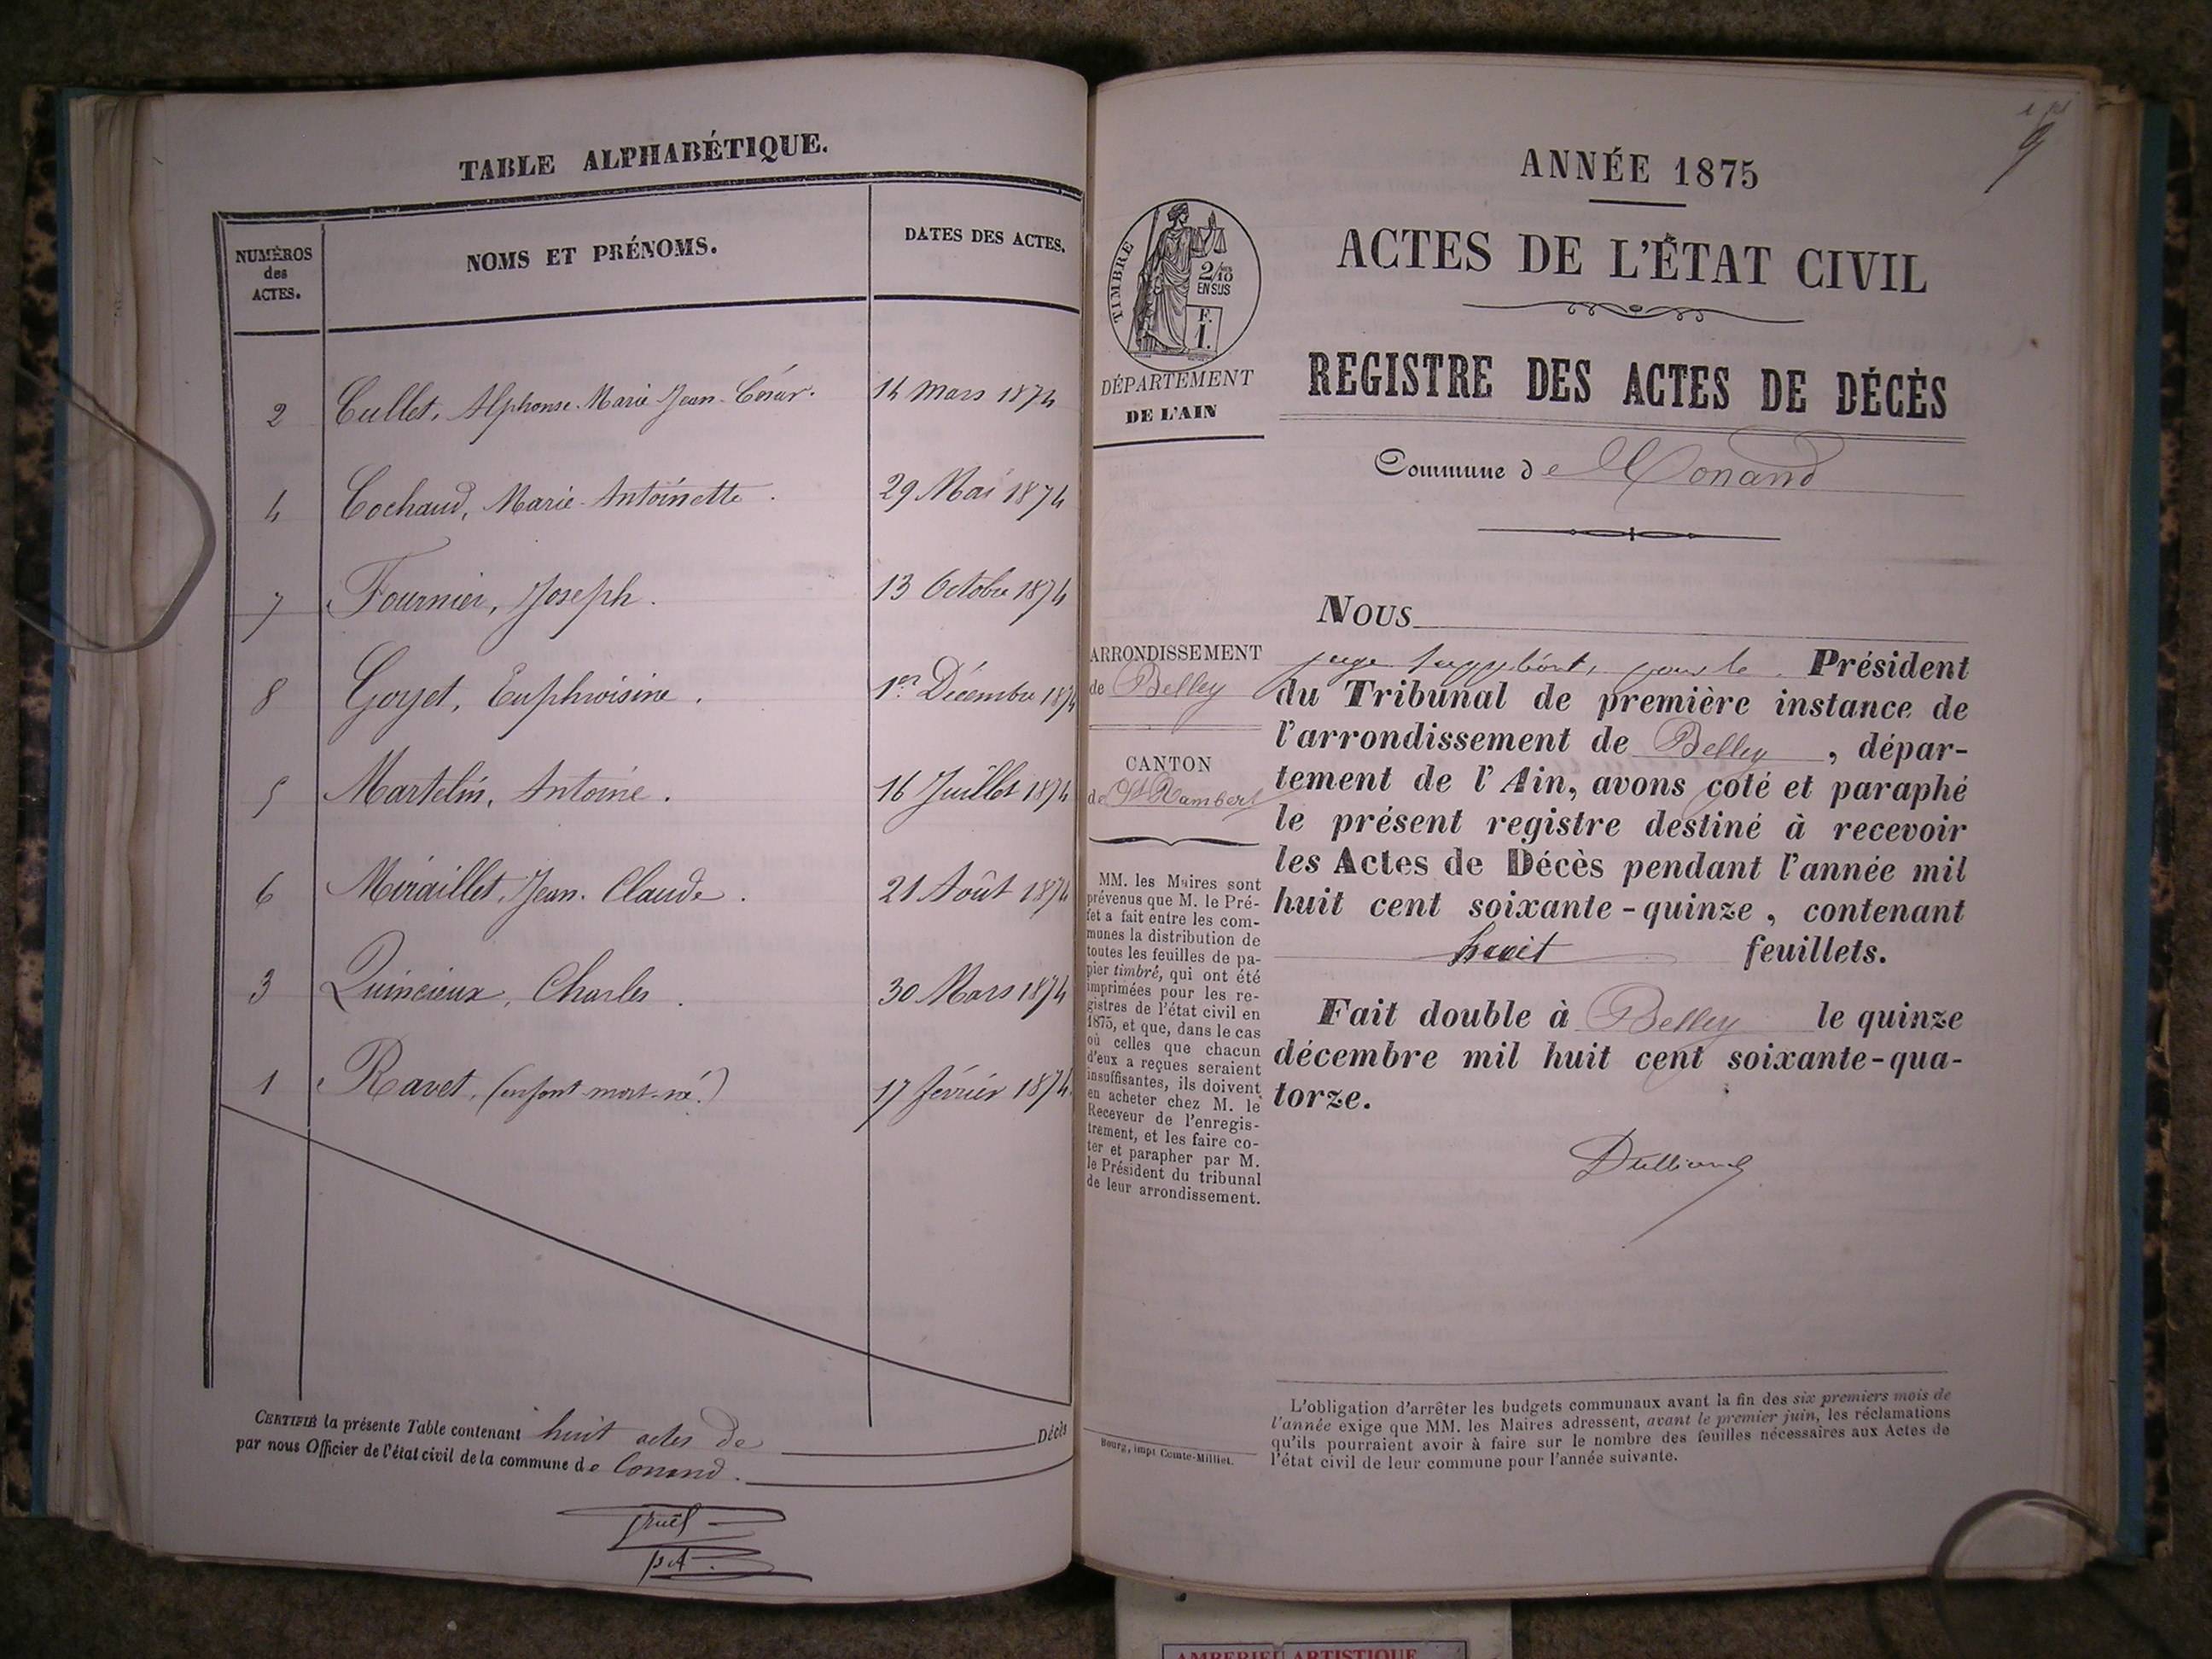 TABLE ALPHABÉTIQUE.
NUMÉROS des ACTES.
NOMS ET PRÉNOMS.
DATES DES ACTES.
2 Cullet, Alphonse-Marie-Jean-César. 14 Mars 1874
4 Cochaud, Marie-Antoinette. 29 Mai 1874
7 Fournier, Joseph. 13 Octobre 1874
8 Goyet, Euphroisine. 1er Décembre 1874
5 Martelin, Antoine. 16 Juillet 1874
6 Miraillet, Jean-Claude. 21 Août 1874
3 Quincieux, Charles. 30 Mars 1874
1 Ravet, (enfant mort-né) 17 février 1874
CERTIFIÉ la présente Table contenant huit actes de Décès
par nous Officier de l'état civil de la commune de Conand.
ANNÉE 1875
ACTES DE L'ÉTAT CIVIL
REGISTRE DES ACTES DE DÉCÈS
Commune de Conand
TIMBRE
2/10 EN SUS
F. 1.
DÉPARTEMENT
DE L'AIN
ARRONDISSEMENT
de Belley
CANTON
de St Rambert
MM. les Maires sont
prévenus que M. le Pré-
fet a fait entre les com-
munes la distribution de
toutes les feuilles de pa-
pier timbré, qui ont été
imprimées pour les re-
gistres de l'état civil en
1875, et que, dans le cas
où celles que chacun
d'eux a reçues seraient
insuffisantes, ils doivent
en acheter chez M. le
Receveur de l'enregis-
trement, et les faire co-
ter et parapher par M.
le Président du tribunal
de leur arrondissement.
Bourg, impr. Comte-Milliet.
NOUS
juge suppléant, pour le Président
du Tribunal de première instance de
l'arrondissement de Belley, dépar-
tement de l'Ain, avons coté et paraphé
le présent registre destiné à recevoir
les Actes de Décès pendant l'année mil
huit cent soixante-quinze, contenant
huit feuillets.
Fait double à Belley le quinze
décembre mil huit cent soixante-qua-
torze.
L'obligation d'arrêter les budgets communaux avant la fin des six premiers mois de
l'année exige que MM. les Maires adressent, avant le premier juin, les réclamations
qu'ils pourraient avoir à faire sur le nombre des feuilles nécessaires aux Actes de
l'état civil de leur commune pour l'année suivante.
AMBERIEU ARTISTIQUE